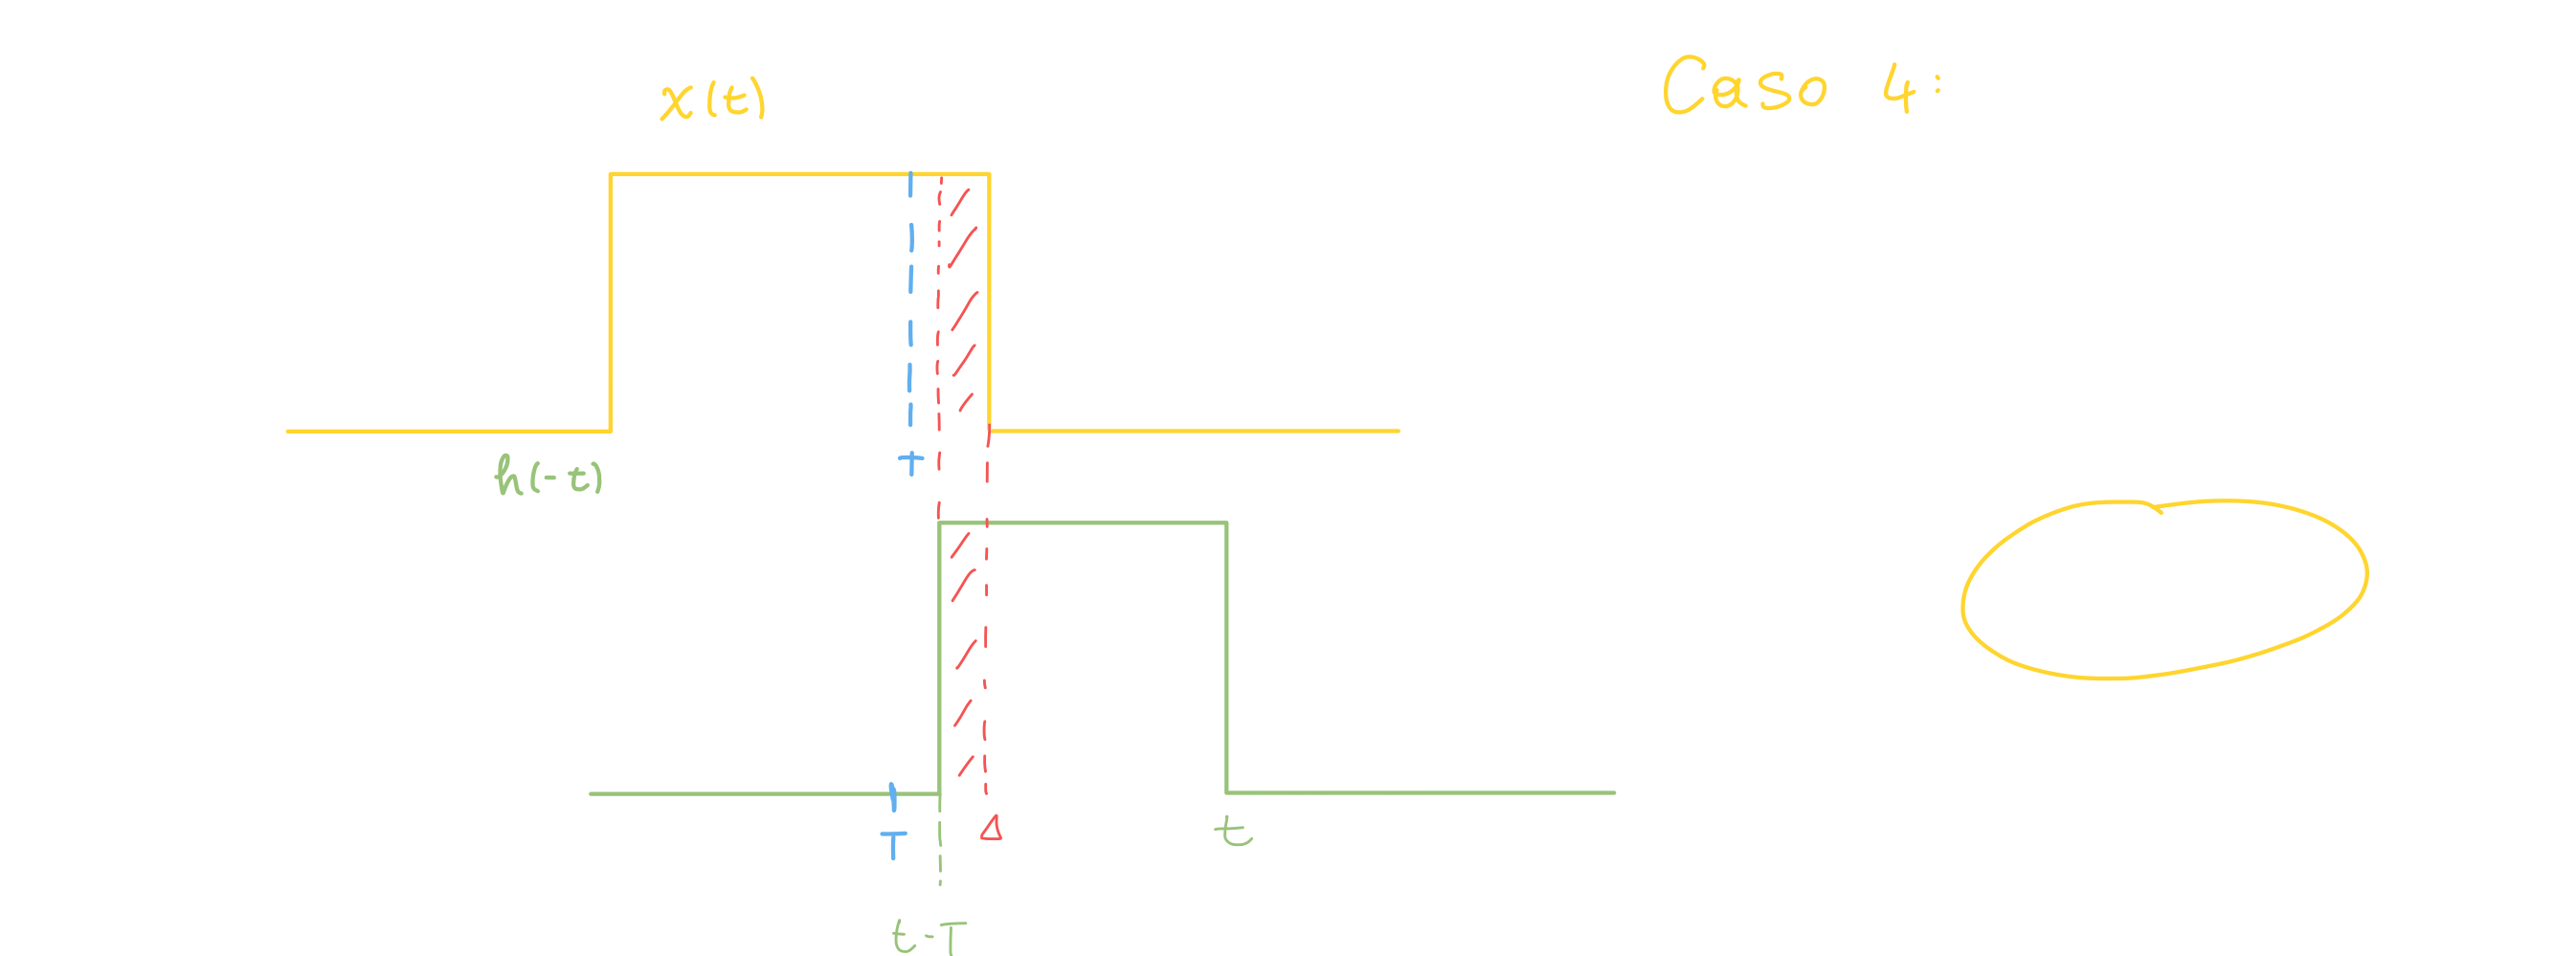 x(t)
Caso 4:
h(-t)
T
T
Δ
t
t-T